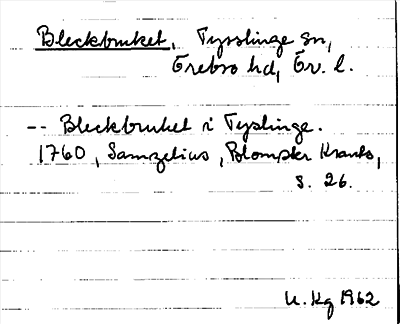 Bleckbruket, Tysslinge sn,
Örebro hd, Ör. l.
-- Bleckbruket i Tyslinge.
1760, Samzelius, Blomster Krants,
s. 26.
U. Hg 1962